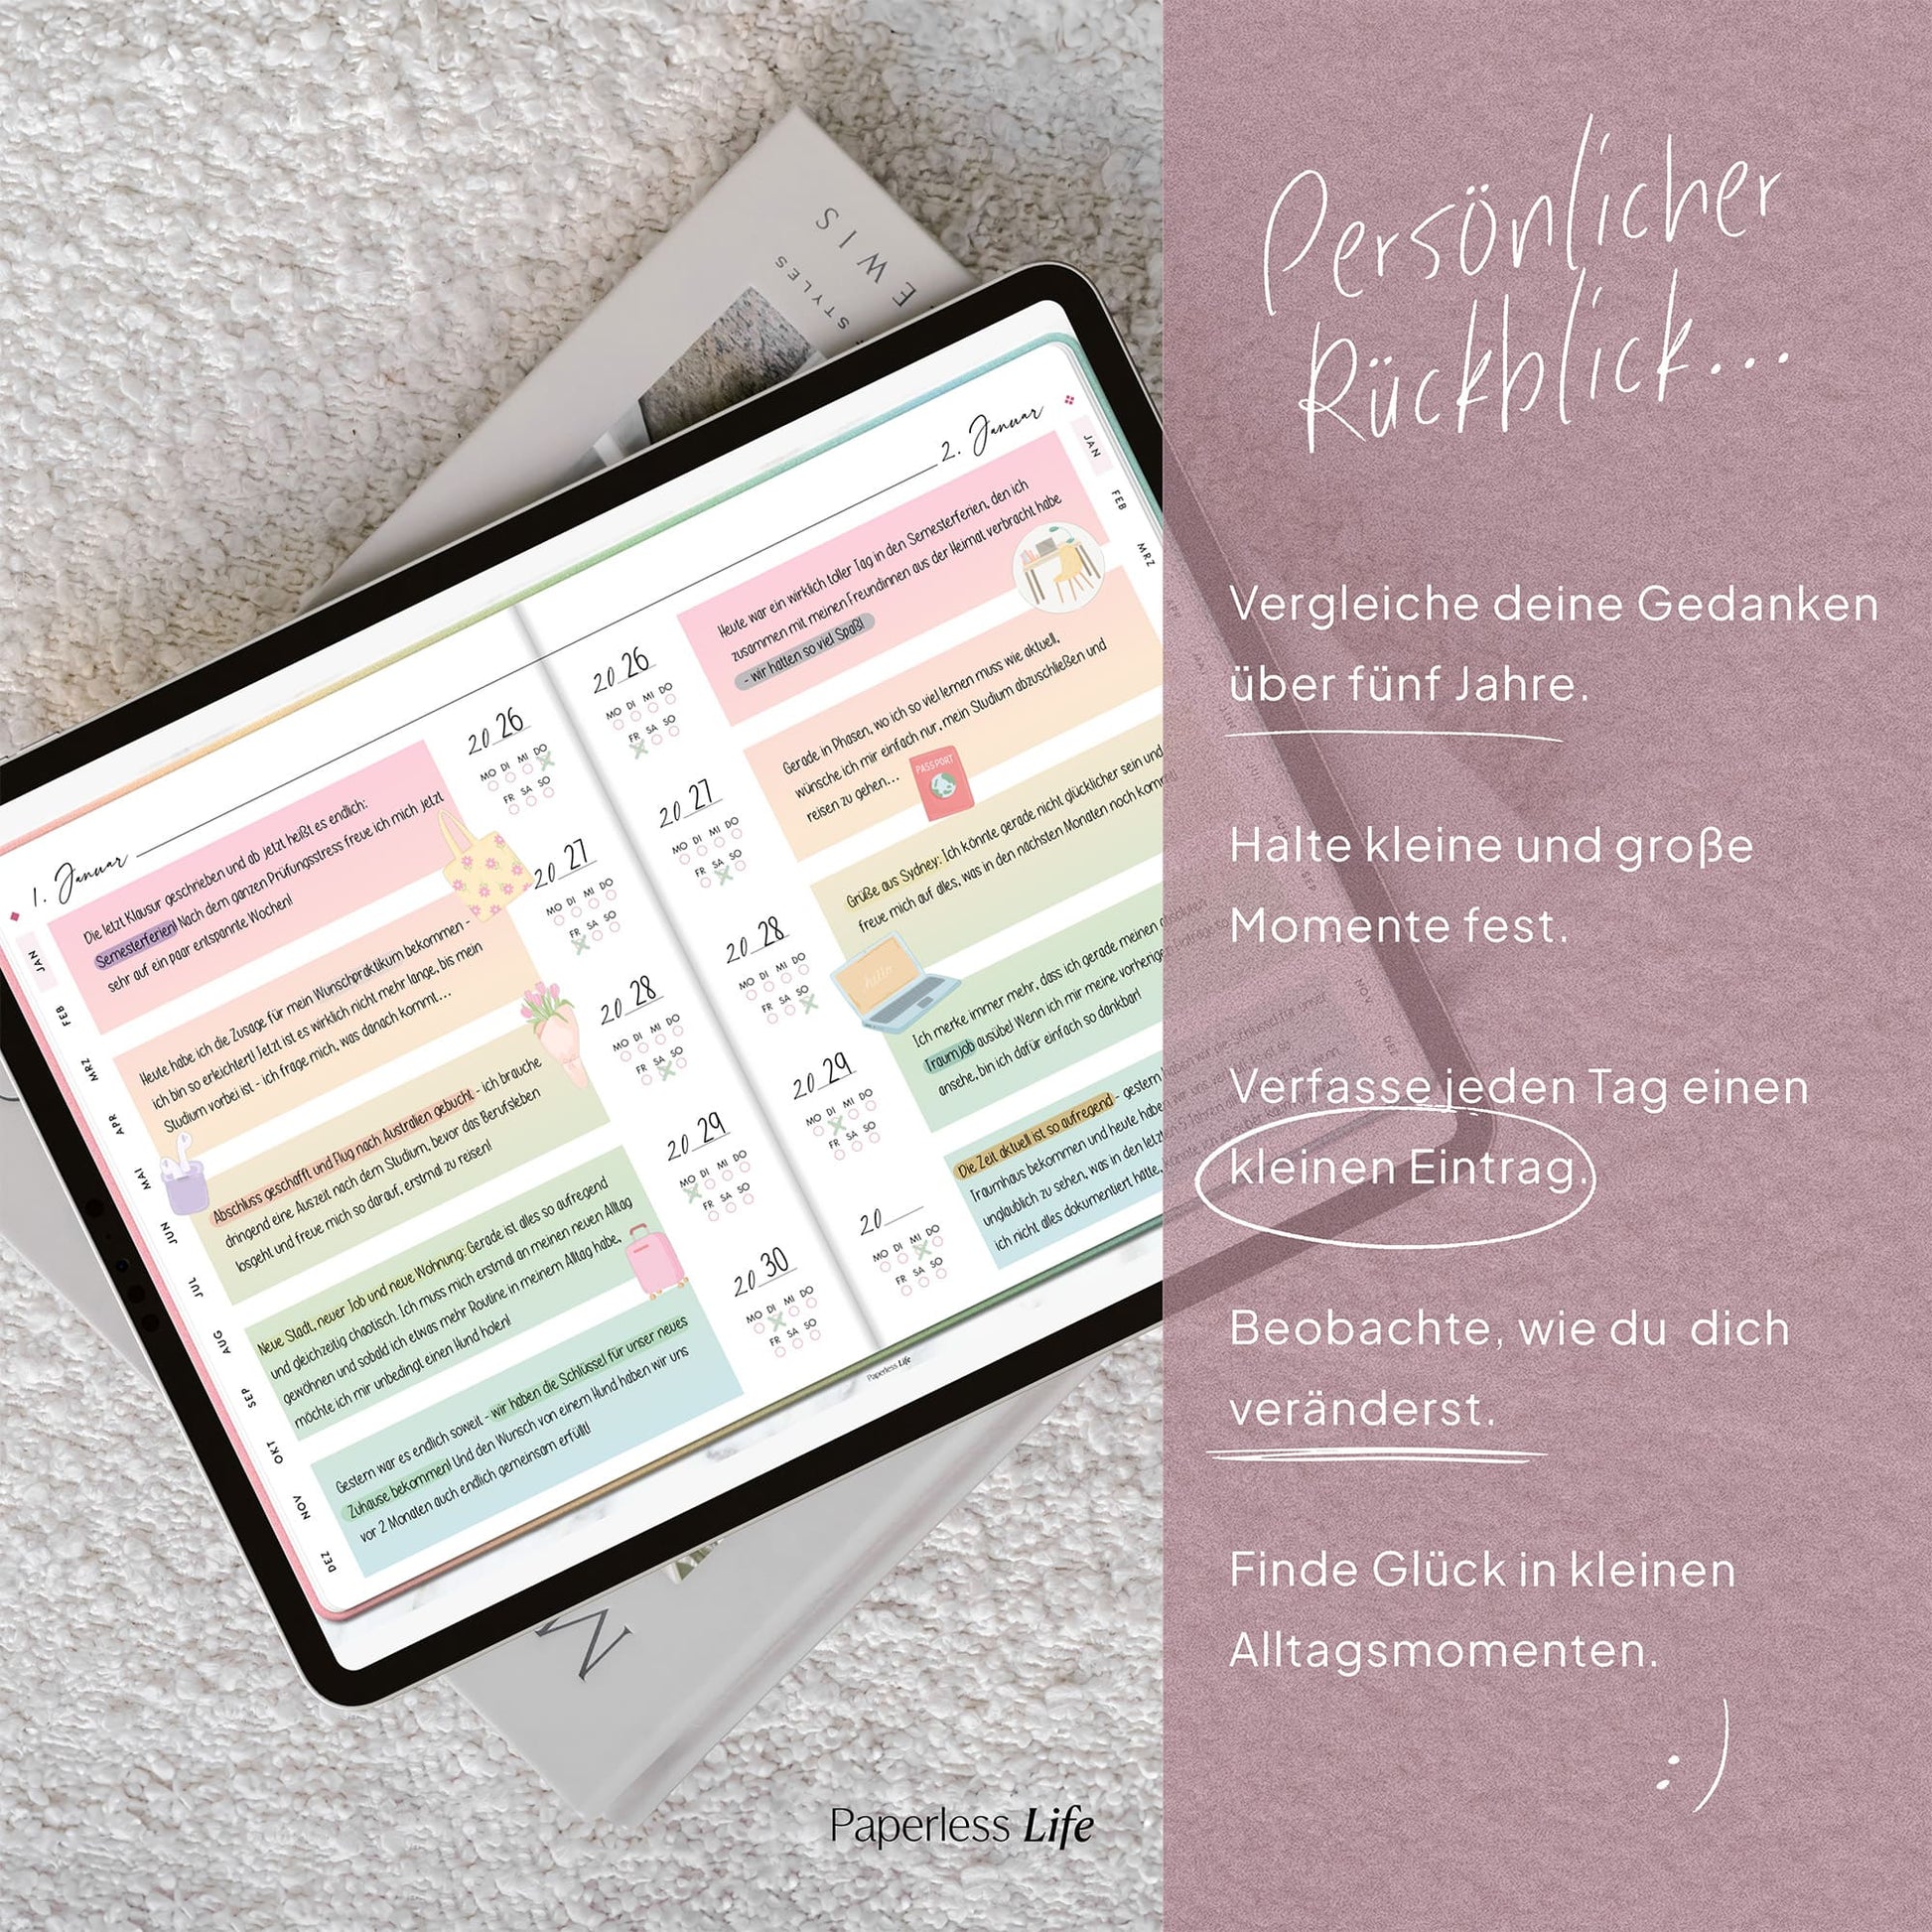 STYLES
EWIS
1. Januar
JAN
FEB
MRZ
APR
MAI
JUN
JUL
AUG
SEP
OKT
NOV
DEZ
Die letzt Klausur geschrieben und ab jetzt heißt es endlich:
Semesterferien! Nach dem ganzen Prüfungsstress freue ich mich jetzt
sehr auf ein paar entspannte Wochen!
2026
MO DI MI DO
FR SA SO
Heute habe ich die Zusage für mein Wunschpraktikum bekommen -
ich bin so erleichtert! Jetzt ist es wirklich nicht mehr lange, bis mein
Studium vorbei ist - ich frage mich, was danach kommt...
2027
MO DI MI DO
FR SA SO
Abschluss geschafft und Flug nach Australien gebucht - ich brauche
dringend eine Auszeit nach dem Studium, bevor das Berufsleben
losgeht und freue mich so darauf, erstmal zu reisen!
2028
MO DI MI DO
FR SA SO
Neue Stadt, neuer Job und neue Wohnung: Gerade ist alles so aufregend
und gleichzeitig chaotisch. Ich muss mich erstmal an meinen neuen Alltag
gewöhnen und sobald ich etwas mehr Routine in meinem Alltag habe,
möchte ich mir unbedingt einen Hund holen!
2029
MO DI MI DO
FR SA SO
Gestern war es endlich soweit - wir haben die Schlüssel für unser neues
Zuhause bekommen! Und den Wunsch von einem Hund haben wir uns
vor 2 Monaten auch endlich gemeinsam erfüllt!
2030
MO DI MI DO
FR SA SO
2. Januar
JAN
FEB
MRZ
2026
MO DI MI DO
FR SA SO
Heute war ein wirklich toller Tag in den Semesterferien, den ich
zusammen mit meinen Freundinnen aus der Heimat verbracht habe
- wir hatten so viel Spaß!
2027
MO DI MI DO
FR SA SO
Gerade in Phasen, wo ich so viel lernen muss wie aktuell,
wünsche ich mir einfach nur, mein Studium abzuschließen und
reisen zu gehen...
PASSPORT
2028
MO DI MI DO
FR SA SO
Grüße aus Sydney: Ich könnte gerade nicht glücklicher sein und
freue mich auf alles, was in den nächsten Monaten noch kommt!
hello
2029
MO DI MI DO
FR SA SO
Ich merke immer mehr, dass ich gerade meinen absoluten
Traumjob ausübe! Wenn ich mir meine vorherigen Einträge
ansehe, bin ich dafür einfach so dankbar!
20
MO DI MI DO
FR SA SO
Die Zeit aktuell ist so aufregend - gestern haben wir
Traumhaus bekommen und heute haben
unglaublich zu sehen, was in den letzten 5 Jahren
ich nicht alles dokumentiert hätte,
Paperless Life
M
Paperless Life
Persönlicher
Rückblick...
Vergleiche deine Gedanken
über fünf Jahre.
Halte kleine und große
Momente fest.
Verfasse jeden Tag einen
kleinen Eintrag.
Beobachte, wie du dich
veränderst.
Finde Glück in kleinen
Alltagsmomenten.
:)